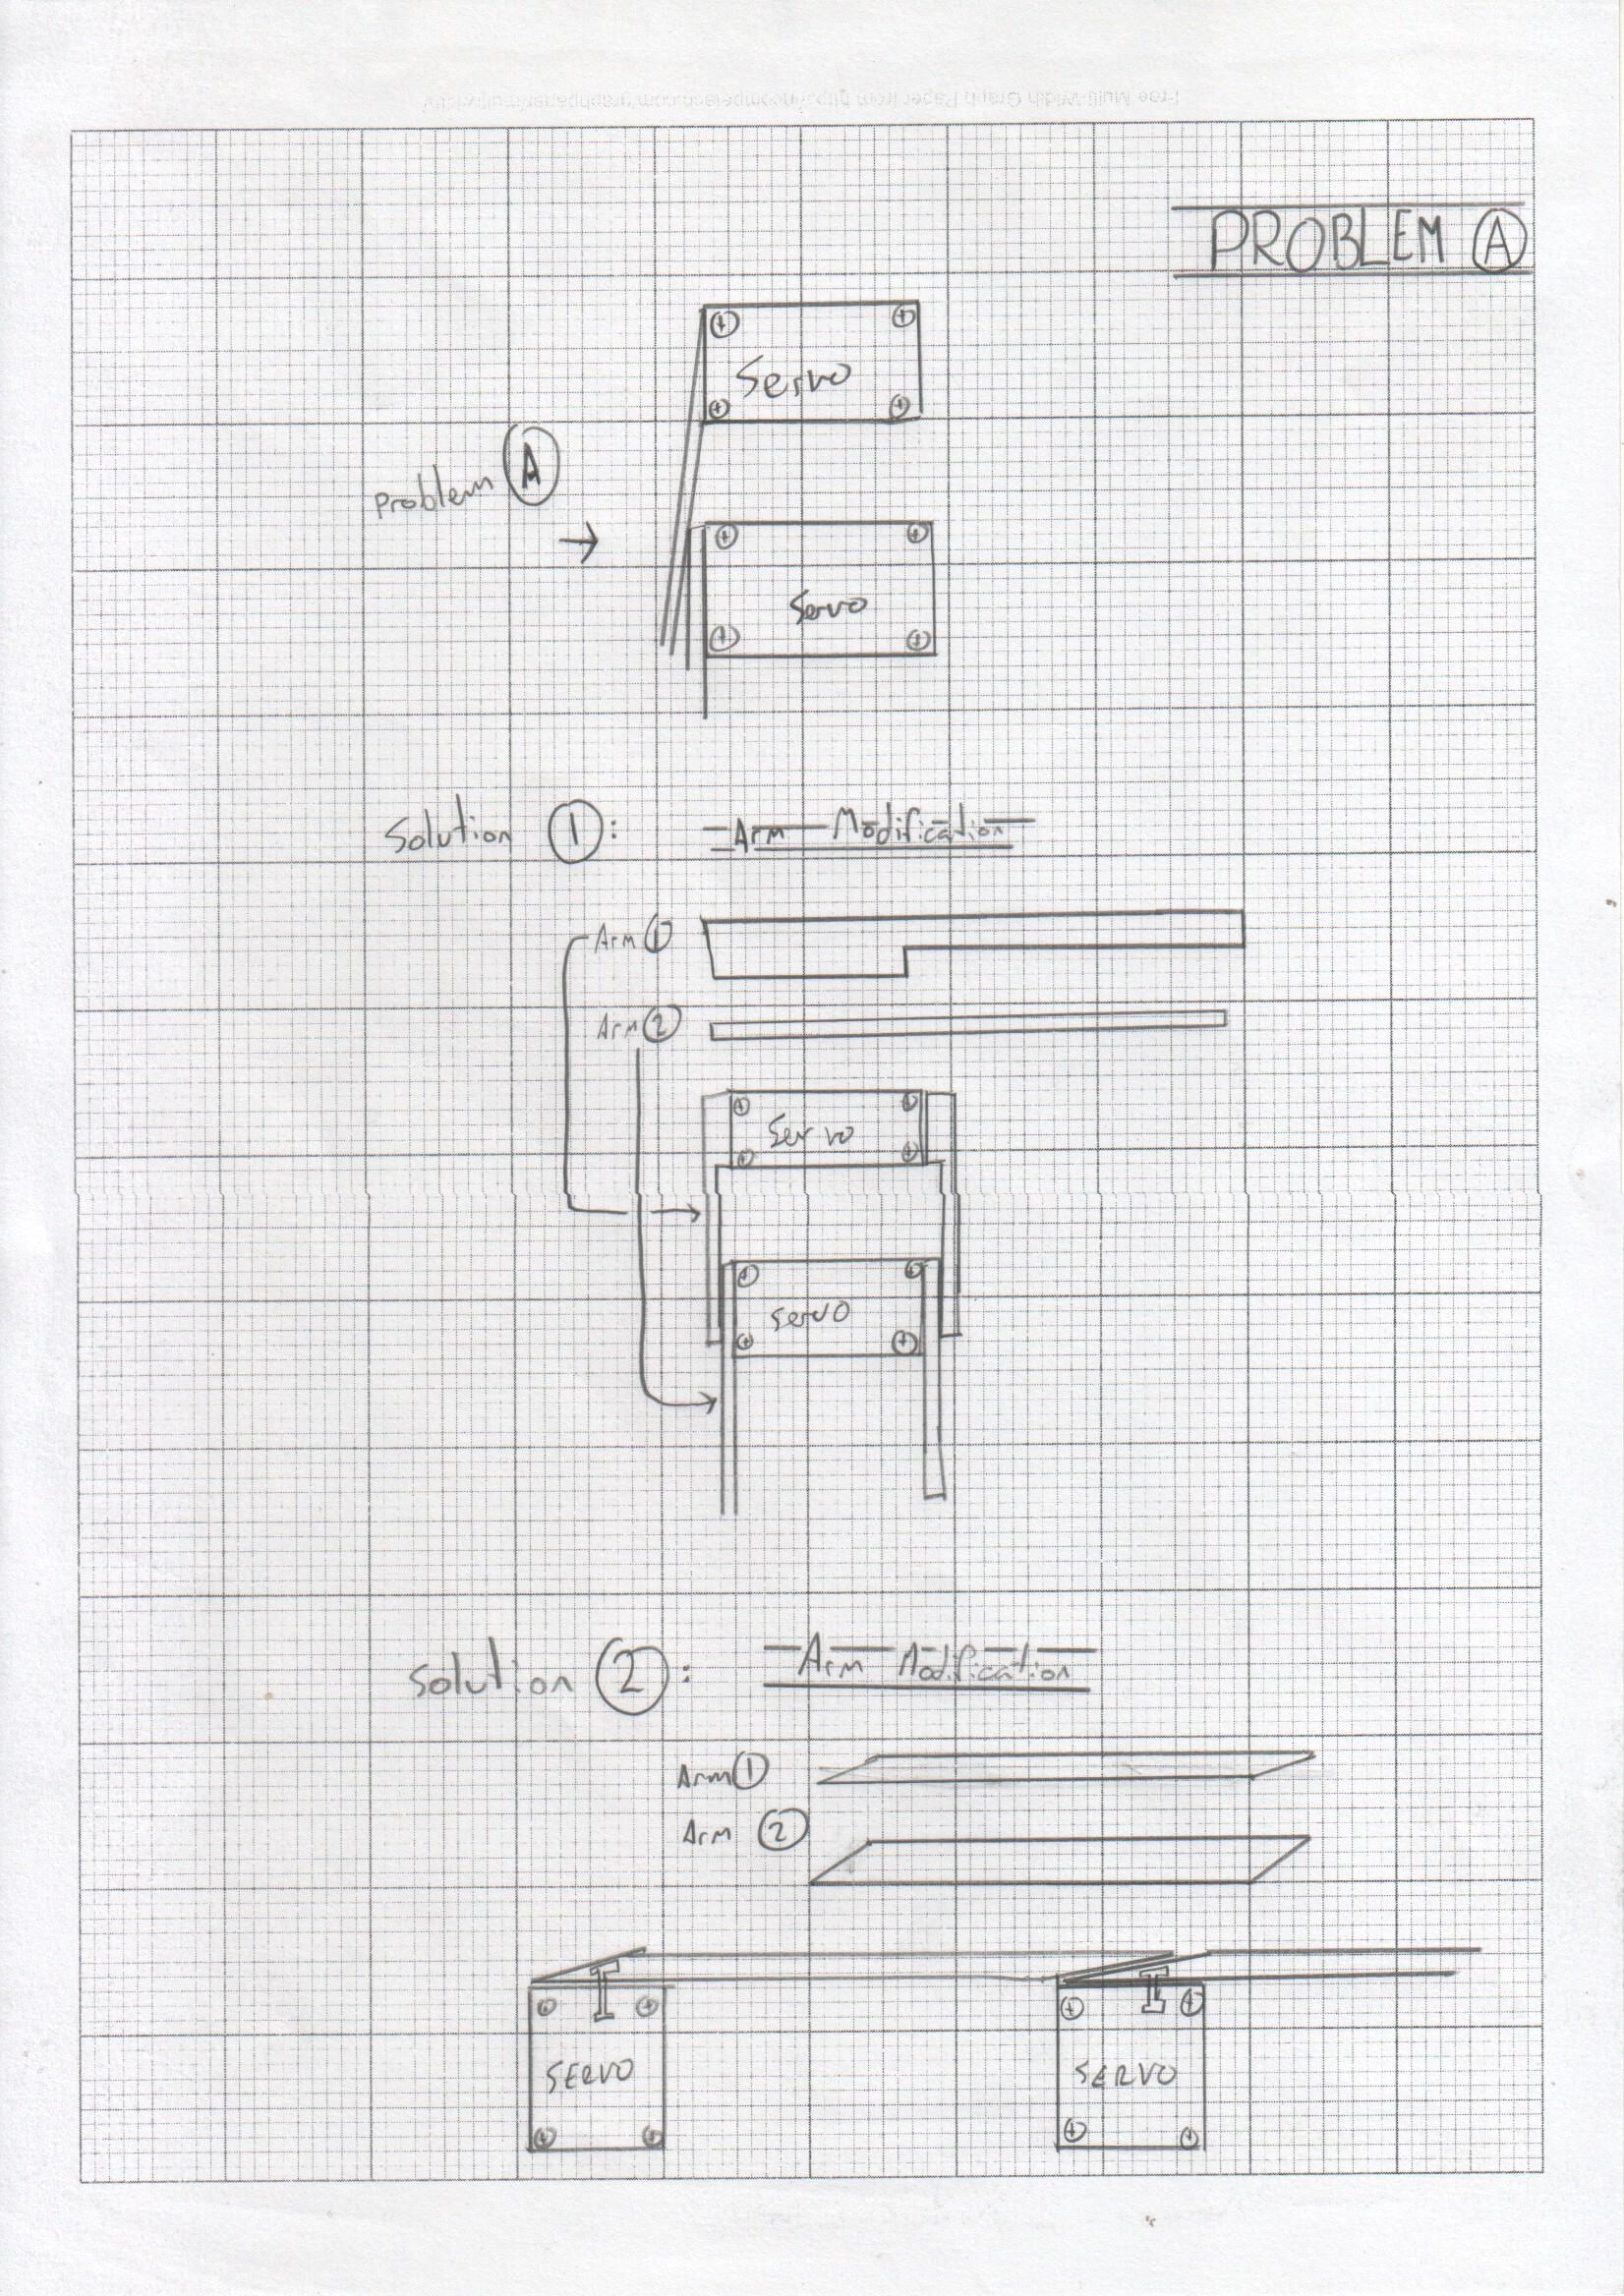 Free Multi-Width Graph Paper from http://incompetech.com/graphpaper/multiwidth/
PROBLEM A
Servo
Problem A
Servo
Solution 1: Arm Modification
Arm 1
Arm 2
Servo
servo
Solution 2: Arm Modification
Arm 1
Arm 2
SERVO SERVO